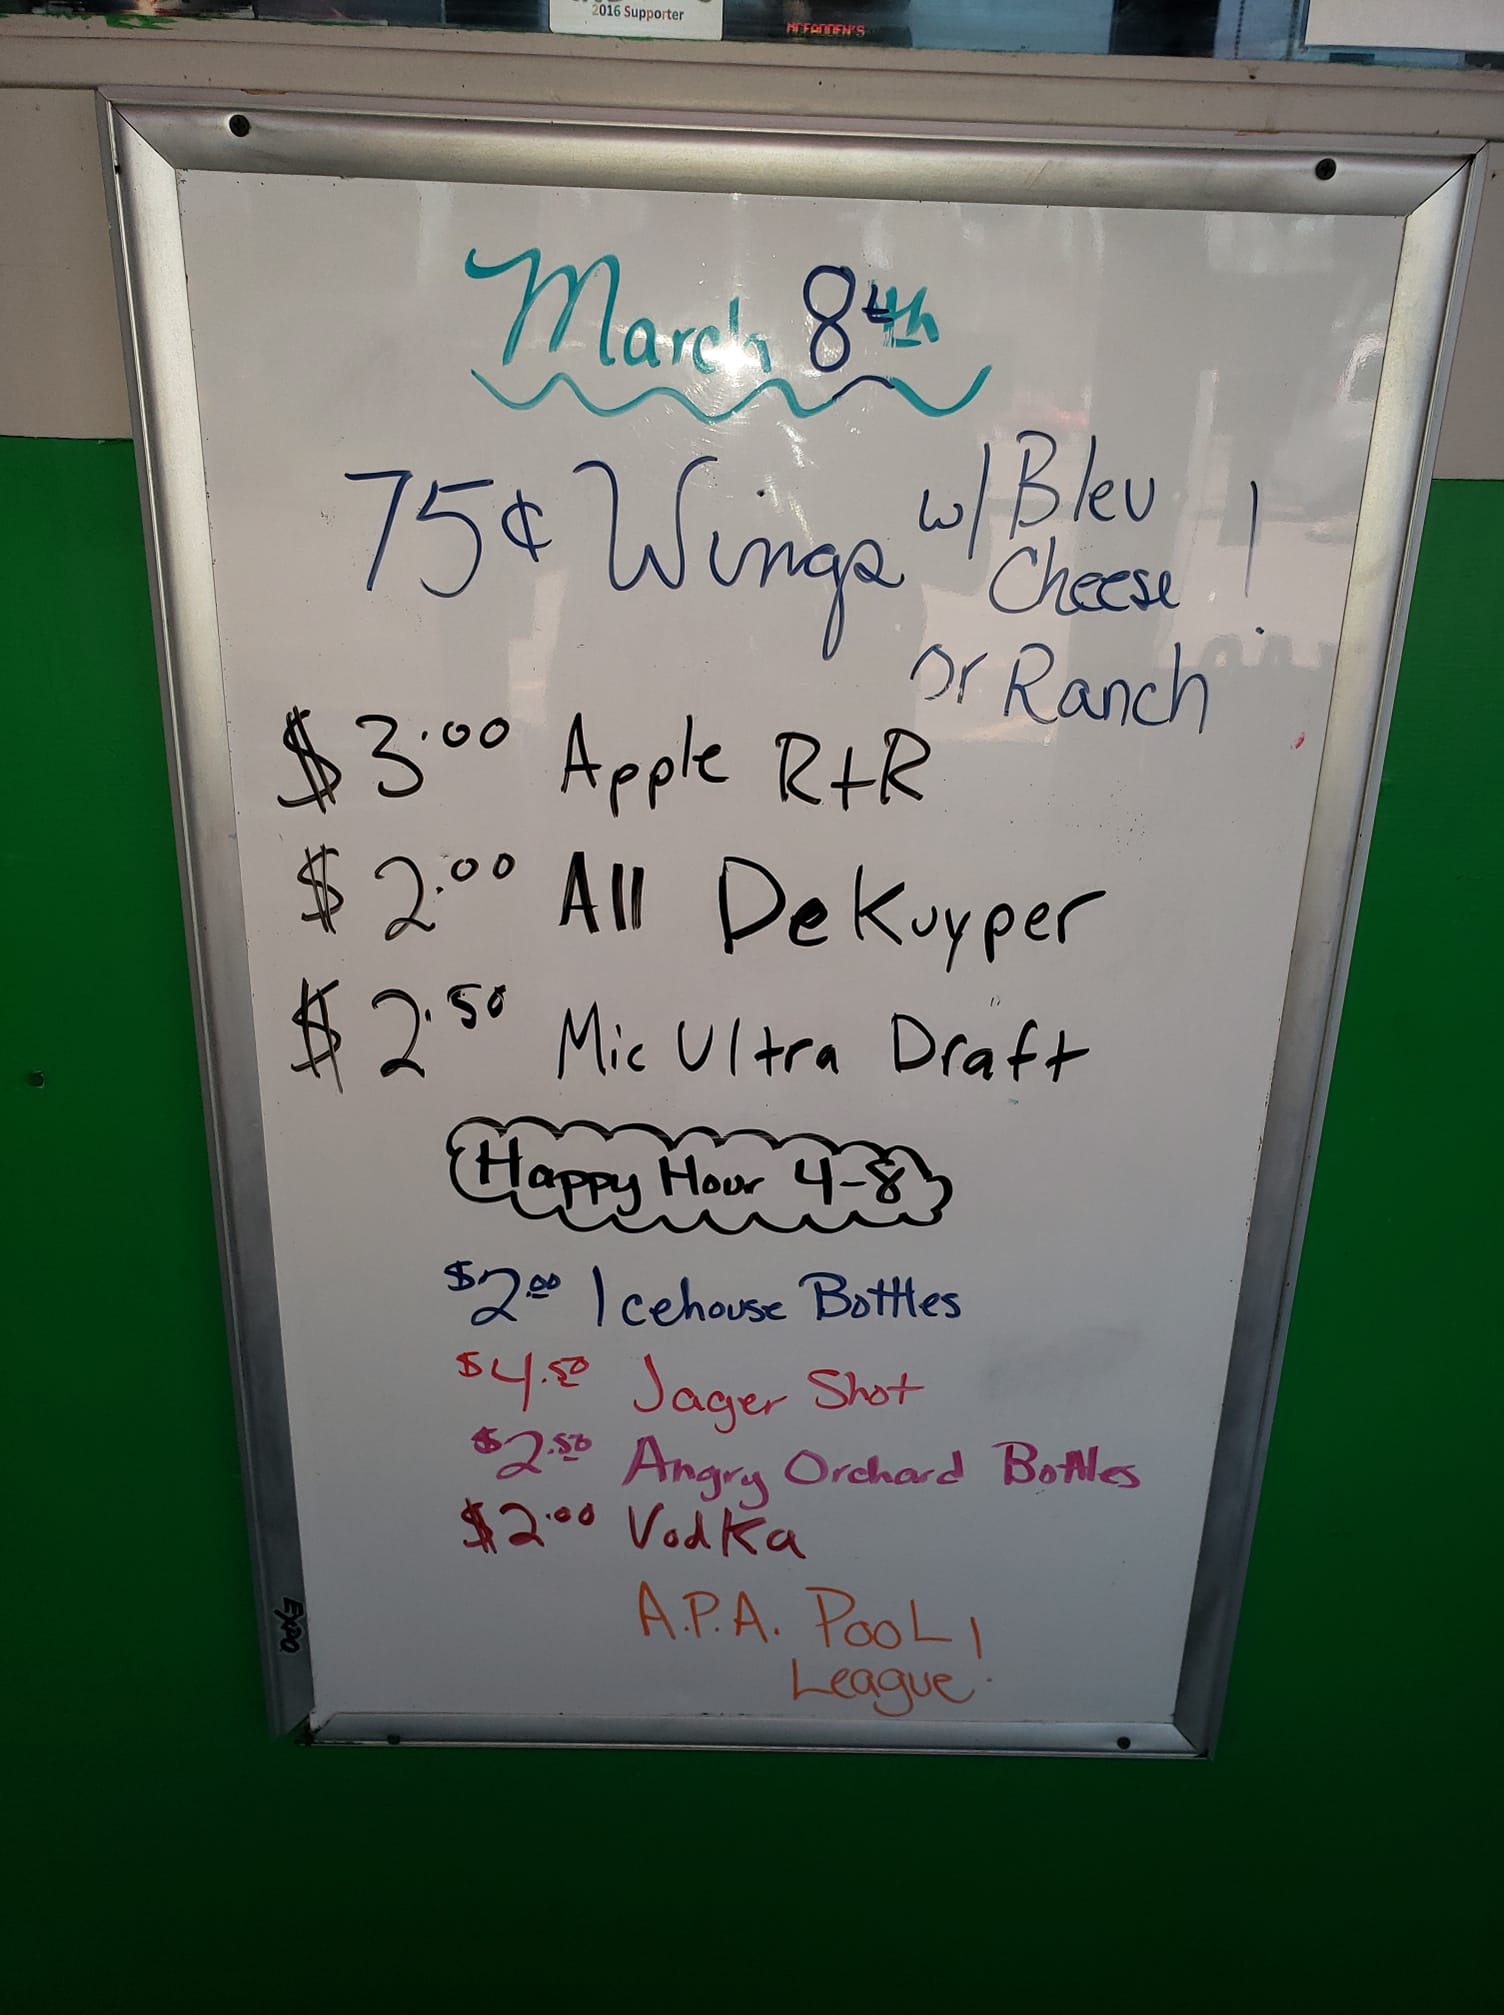 2016 Supporter
McFADDEN'S
March 8th
75¢ Wings w/ Bleu
Cheese !
or Ranch
$3.00 Apple R+R
$2.00 All DeKuyper
$2.50 Mic Ultra Draft
Happy Hour 4-8
$2.00 Icehouse Bottles
$4.50 Jager Shot
$2.50 Angry Orchard Bottles
$2.00 Vodka
A.P.A. Pool !
League
EXPO